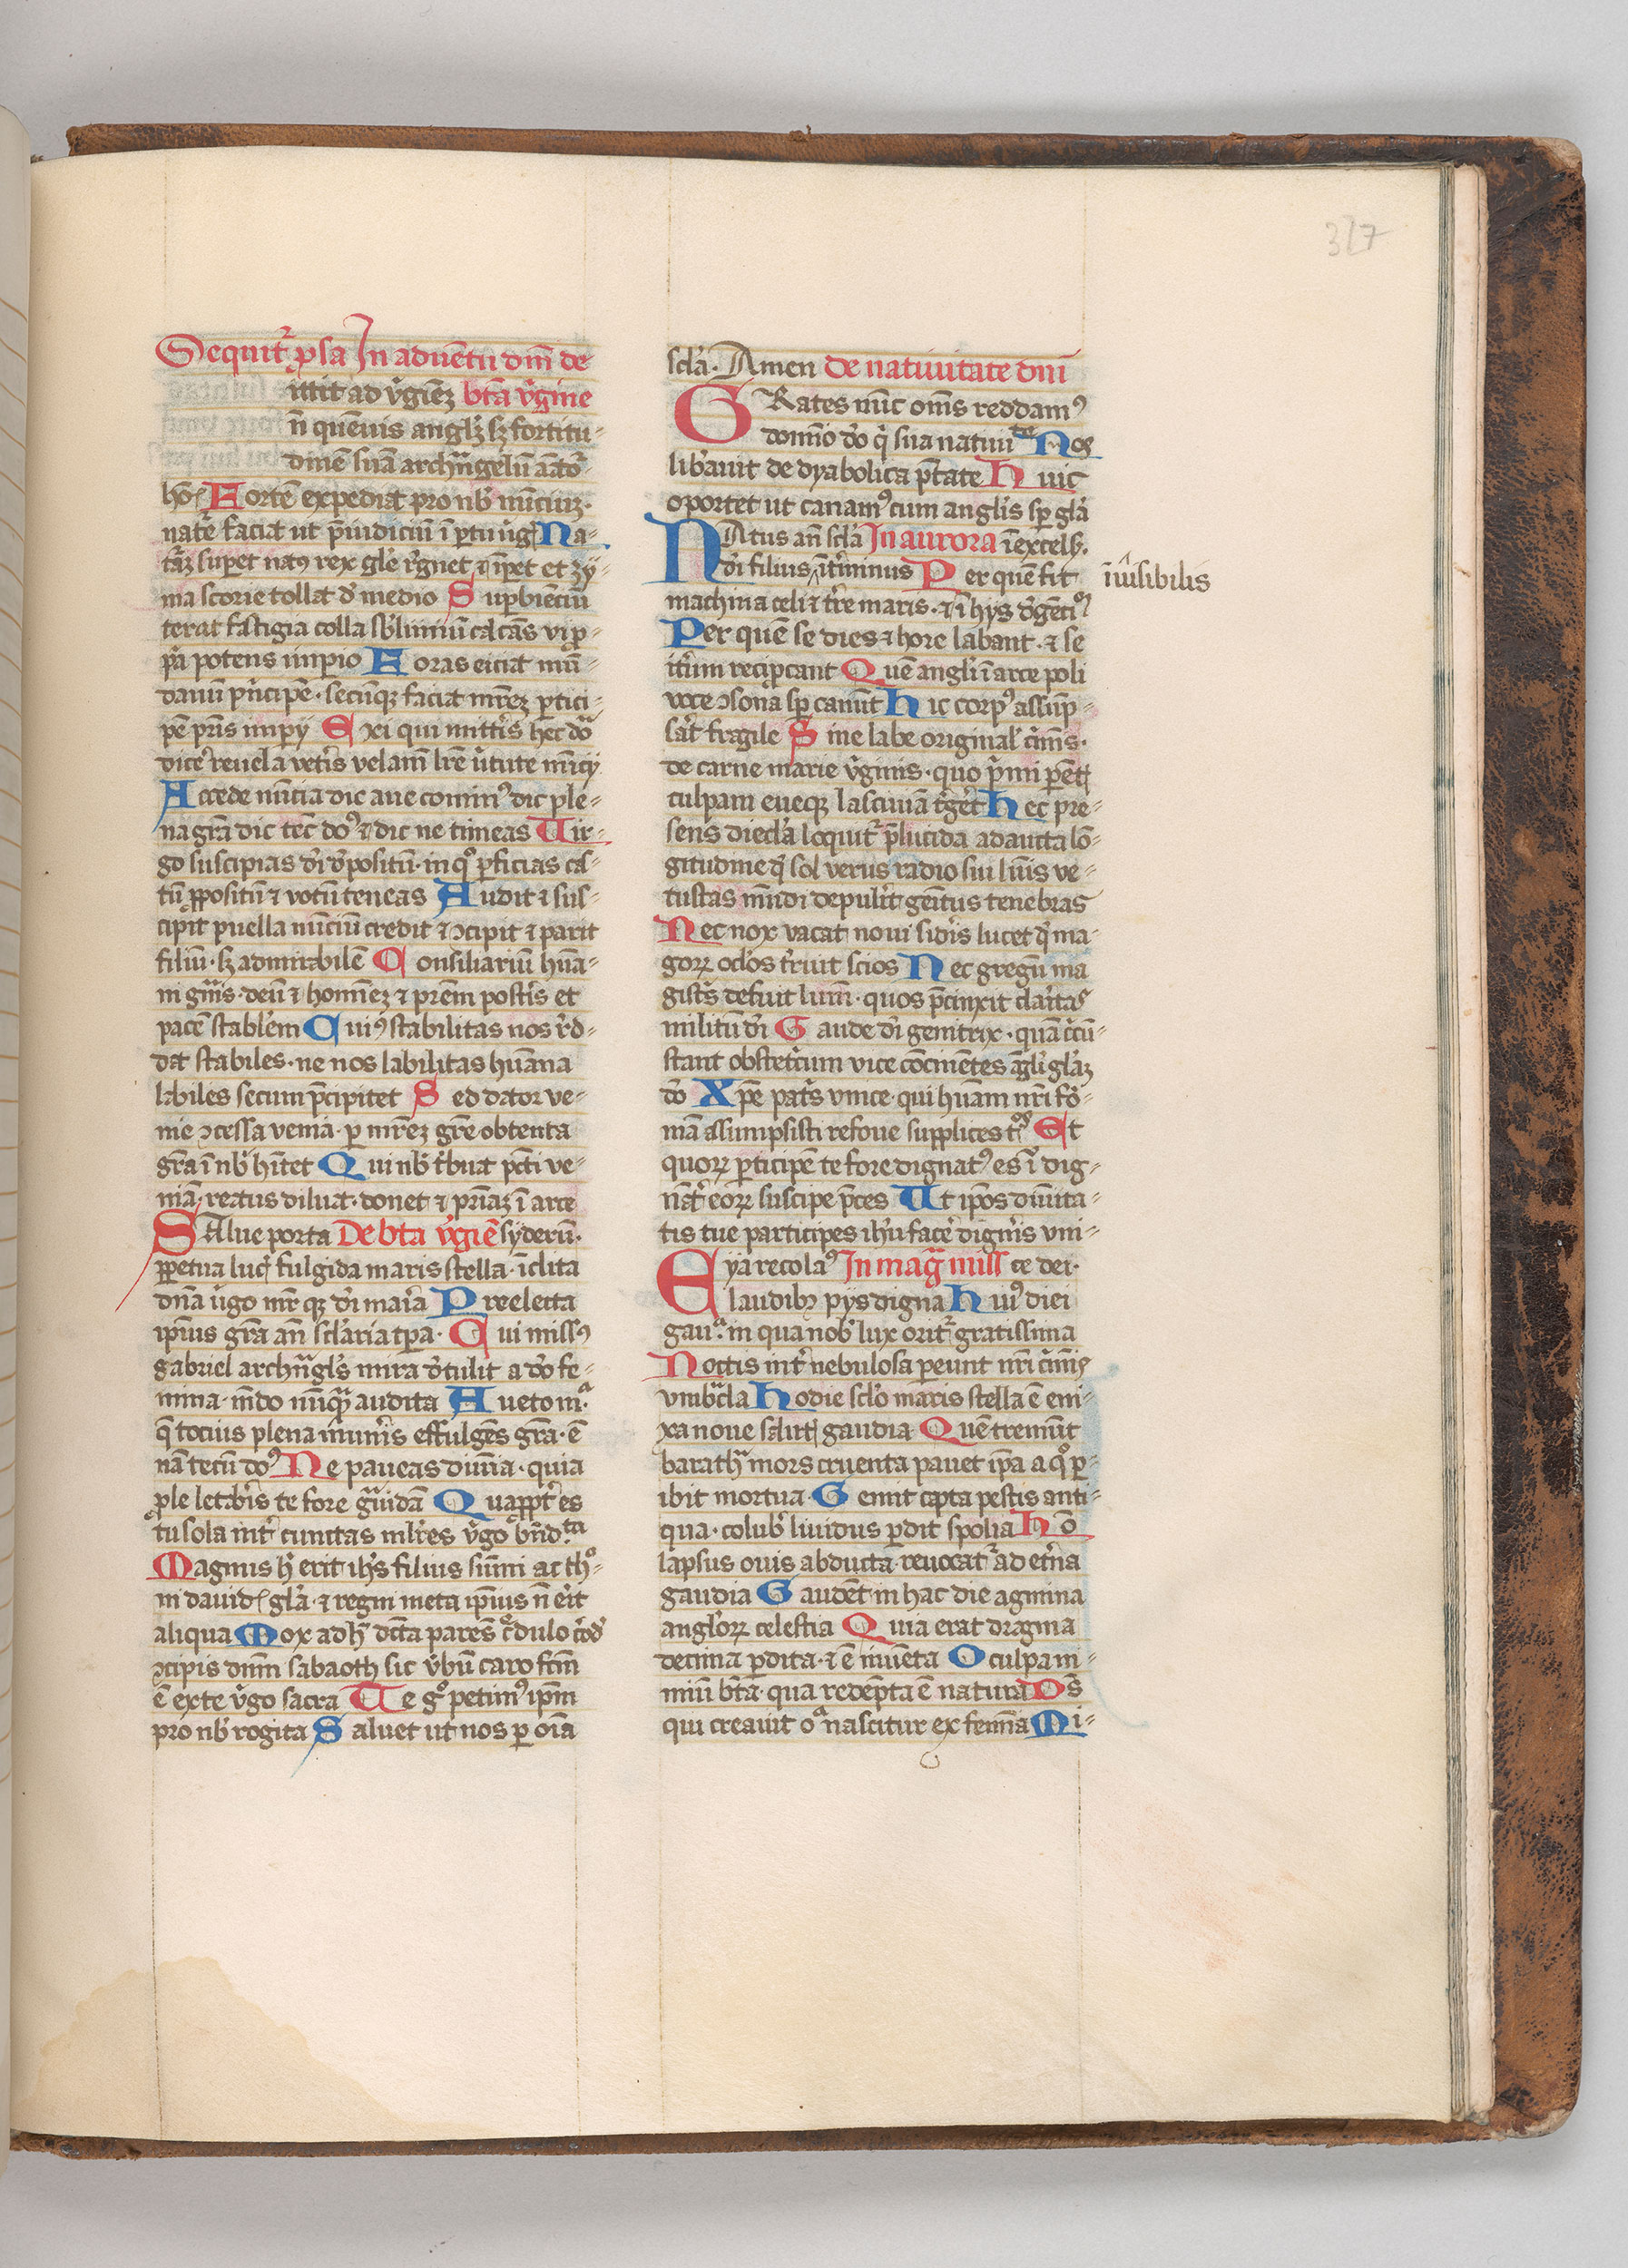 327
Sequit᷑ ꝓsa In aduētu dn̄i de
ittit ad v̾giēꝫ bt̄a v̾gine
n̄ quēuis angl̓ꝫ sꝫ fortitu-
dinē suā archāngelū
Fortē expediat pro nb̓ nūciuꝫ·
nat᷑e faciat ut p̄iudiciū ī ꝑtu Na-
sup̱et natꝰ rex gl̓e r̓gnet ⁊ īpet et zy-
ma scorie tollat d̓ medio Sup̱biēciū
terat fastigia colla sb̓limiū calcās vi ꝓ-
p̓a potens imp̱io Foras eiciat mū-
danū p̓ncipē· secūqꝫ faciat mr̄eꝫ ꝑtici-
pē pr̄is imp̱ij Exi qui mitt̓is hec
dic̓e reuela vet̓is velam̄ lr̄e v̓tute nūcij
Accede nūcia dic aue cominꝰ dic ple-
na gr̄a dic tec̄ ⁊ dic ne timeas Uir-
go suscipias d̓i d̓positū· in qͦ ꝑficias cas-
tū ꝓpositū ⁊ votū teneas Audit ⁊ sus-
cipit puella nūciū credit ⁊ ↄcipit ⁊ parit
filiū· sꝫ admirabilē Consiliariū hūa-
ni gn̄is· deū ⁊ hominēꝫ ⁊ pr̄em post̓is et
pacē stabl̓em Cuiꝰ stabilitas nos r̓d-
dat stabiles· ne nos labilitas hūana
labiles secum p̄cipitet Sed dator ve-
nie ↄcessa venia· ꝑ mr̄eꝫ gr̄e obtenta
gr̄a ī nb̓ hītet Qui nb̓ t̓buat pc̄ti ve-
niā· reatus diluat· donet ⁊ pr̄iaꝫ ī arce
Salue porta De bt̄a v̓giē syderū·
ꝑpetua fulgida maris stella· īclita
dn̄a v̓go mr̄ qꝫ d̓i maria Preelecta
ip̄ius gr̄a an̄ Cui missꝰ
gabriel archāgl̓s mira d̓tulit a fe-
mina· mūdo nūqͣ audita Aueto
q̄ tocius plena mun̓is effulgēs gr̄a· ē
nā tecū doꝰ Ne paueas diuīa· quia
ꝓle letab̓is te fore gͣuidā Quaꝓpt̓ es
tu sola int̓ cunctas ml̓ires v̓go bn̄dcta
Magnus h̓ erit ih̓s filius sūmi ac thͦ-
ni dauid gl̓a· ⁊ regni meta ip̄ius n̄ erit
aliqua Mox ad h̓ dc̄ta parēs c̓dulo
ↄcipis dn̄m sabaoth sic v̓bū caro fc̄m
ē ex te v̓go sacra Te gͦ petimꝰ ip̄m
pro nb̓ rogita Saluet ut nos ꝑ oīa
scl̓a· Amen De natiuitate dn̄i
GRates nūc om̄s reddamꝰ
domīo d̓o q̓ sua natiuitate Nos
lib̓auit de dyabolica p̄tate Huic
oportet ut canamꝰ cum angl̓is sꝑ gl̓a
NAtus an̄ scl̓a In aurora ī excels̓·
d̓i filius īt̓minus Per quē fit īuisibilis
machina celi ⁊ t̓re maris· ⁊ ī hys
Per quē se dies ⁊ hore labant· ⁊ se
it̓um recip̓cant Quē angl̓i ī arce poli
voce ↄsona sꝑ canūt Hic corpꝰ assūp-
sat̓ fragile Sine labe original̓ c̓mīs·
de carne marie v̓ginis· quo p̓mi
culpam eueqꝫ lasciuiā Hec pre-
sens diecl̓a loquit᷑ p̄lucida adaucta lō-
gitudine sol verus radio sui lūis ve-
tustas mūdi depul̓it genitus tenebras
Nec nox vacat noui sid̓is luce ma-
goꝝ ocl̓os t̓ruit scios Nec gregū ma
gist̓s defuit lum̄· quos p̄cinxit clarita
militū d̓i Gaude d̓i genitrix· quā c̓cū-
stant obstet̓cum vice concinētes āgl̓i gl̓aꝫ
d̓o Xpē pat̓s vnice· qui hūam nr̄i fo᷑-
mā assumpsisti refoue supplices Et
quoꝝ ꝑticipē te fore dignatꝰ es ī dig-
nat̓ eoꝝ suscipe p̄ces Ut ip̄os diuīta-
tis tue participes ih̓u fac̓e dign̓is vni-
Eya recolaꝰ In magͣ miss ce dei·
laudibꝫ pys digna Huiꝰ diei
gauͣ· in qua nob̓ lux orit᷑ gratissima
Noctis int̓ nebulosa ꝑeunt nr̄i c̓mīs
vmbͣcla Hodie scl̓o maris stella ē eni-
xa noue salut̓ gaudia Quē tremūt
barathͣ mors cruenta pauet ip̄a a qͦ ꝑ-
ibit mortua· Gemit capta pestis anti-
qua· colub̓ liuidus ꝑdit spolia Hō
lapsus ouis abducta reuocat᷑ ad et̓na
gaudia Gaudēt in hac die agmina
angl̓oꝝ celestia Quia erat dragma
decima ꝑdita· ⁊ ē inuēta O culpa ni-
miū bt̄a· qua redēpta ē natura Ds̄
qui creauit oͣ nascitur ex femīa Mi-